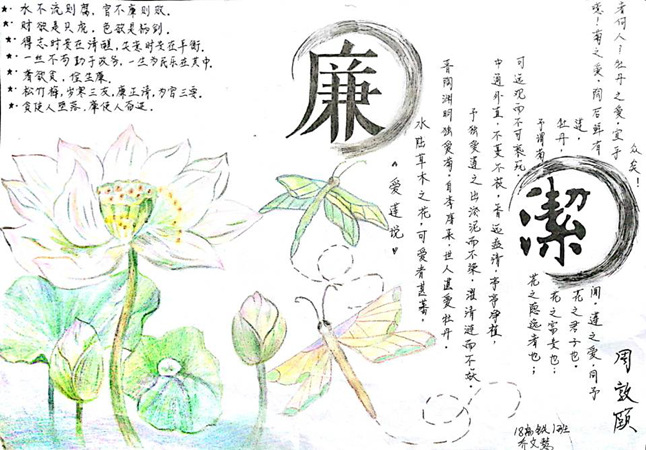 水不流则腐，官不廉则败。
财欲是只虎，色欲是把剑。
得志时贵在清醒，失意时贵在平衡。
一丝不苟勤于政务，一生为民乐在其中。
奢欲贪，俭生廉。
松竹梅，岁寒三友，廉正清，为官三要。
贪使人堕落，廉使人奋进。
廉
潔
《爱莲说》
水陆草木之花，可爱者甚蕃。
晋陶渊明独爱菊，自李唐来，世人甚爱牡丹。
予独爱莲之出淤泥而不染，濯清涟而不妖，
中通外直，不蔓不枝，香远益清，亭亭净植，
可远观而不可亵玩
予谓菊，花之隐逸者也；
牡丹，花之富贵者也；
莲，花之君子也。
噫！菊之爱，陶后鲜有闻，莲之爱，同予
者何人？牡丹之爱，宜乎
众矣！
周敦颐
18高铁1班